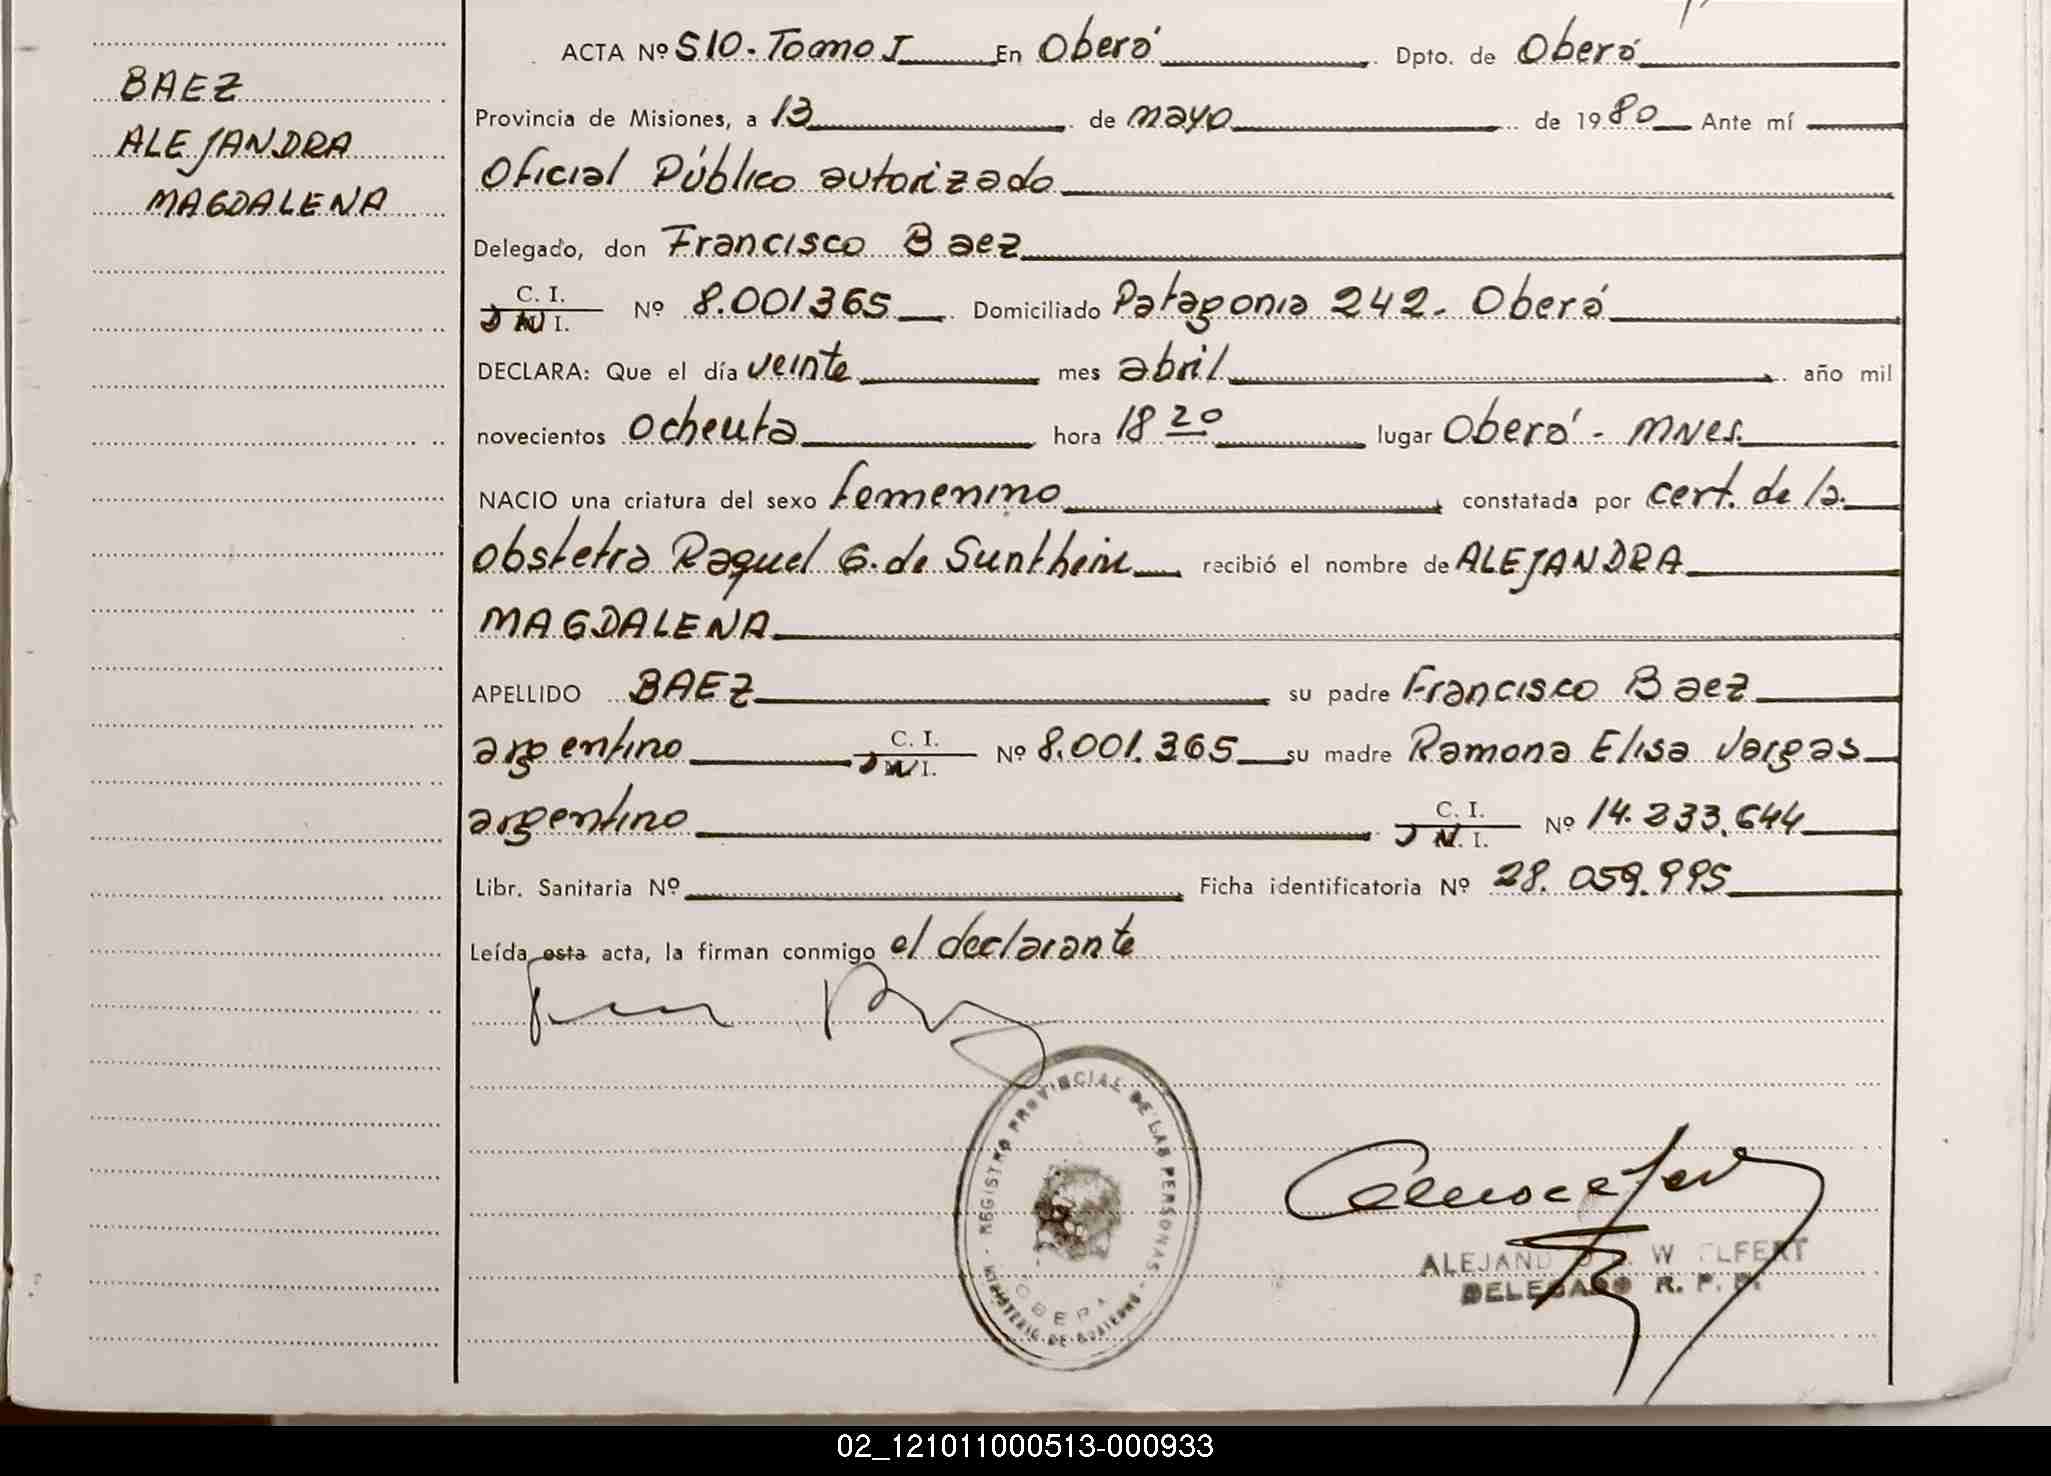 BAEZ
ALEJANDRA
MAGDALENA
ACTA Nº 510. Tomo I En Oberá Dpto. de Oberá
Provincia de Misiones, a 13 de mayo de 1980 Ante mí
Oficial Público autorizado
Delegado, don Francisco Baez
C. I.
D N I. Nº 8.001365 Domiciliado Patagonia 242. Oberá
DECLARA: Que el día veinte mes abril año mil
novecientos ochenta hora 18 20 lugar Oberá - Mnes.
NACIO una criatura del sexo femenino constatada por cert. de la
obstetra Raquel G. de Sunthein recibió el nombre de ALEJANDRA
MAGDALENA
APELLIDO BAEZ su padre Francisco Baez
argentino C. I. D N I. Nº 8.001.365 su madre Ramona Elisa Vargas
argentino C. I. D N. I. Nº 14.233.644
Libr. Sanitaria Nº Ficha identificatoria Nº 28.059.995
Leída esta acta, la firman conmigo el declarante
REGISTRO PROVINCIAL DE LAS PERSONAS
MINISTERIO DE GOBIERNO
OBERA
DELEGADO R. P. P.
02_121011000513-000933